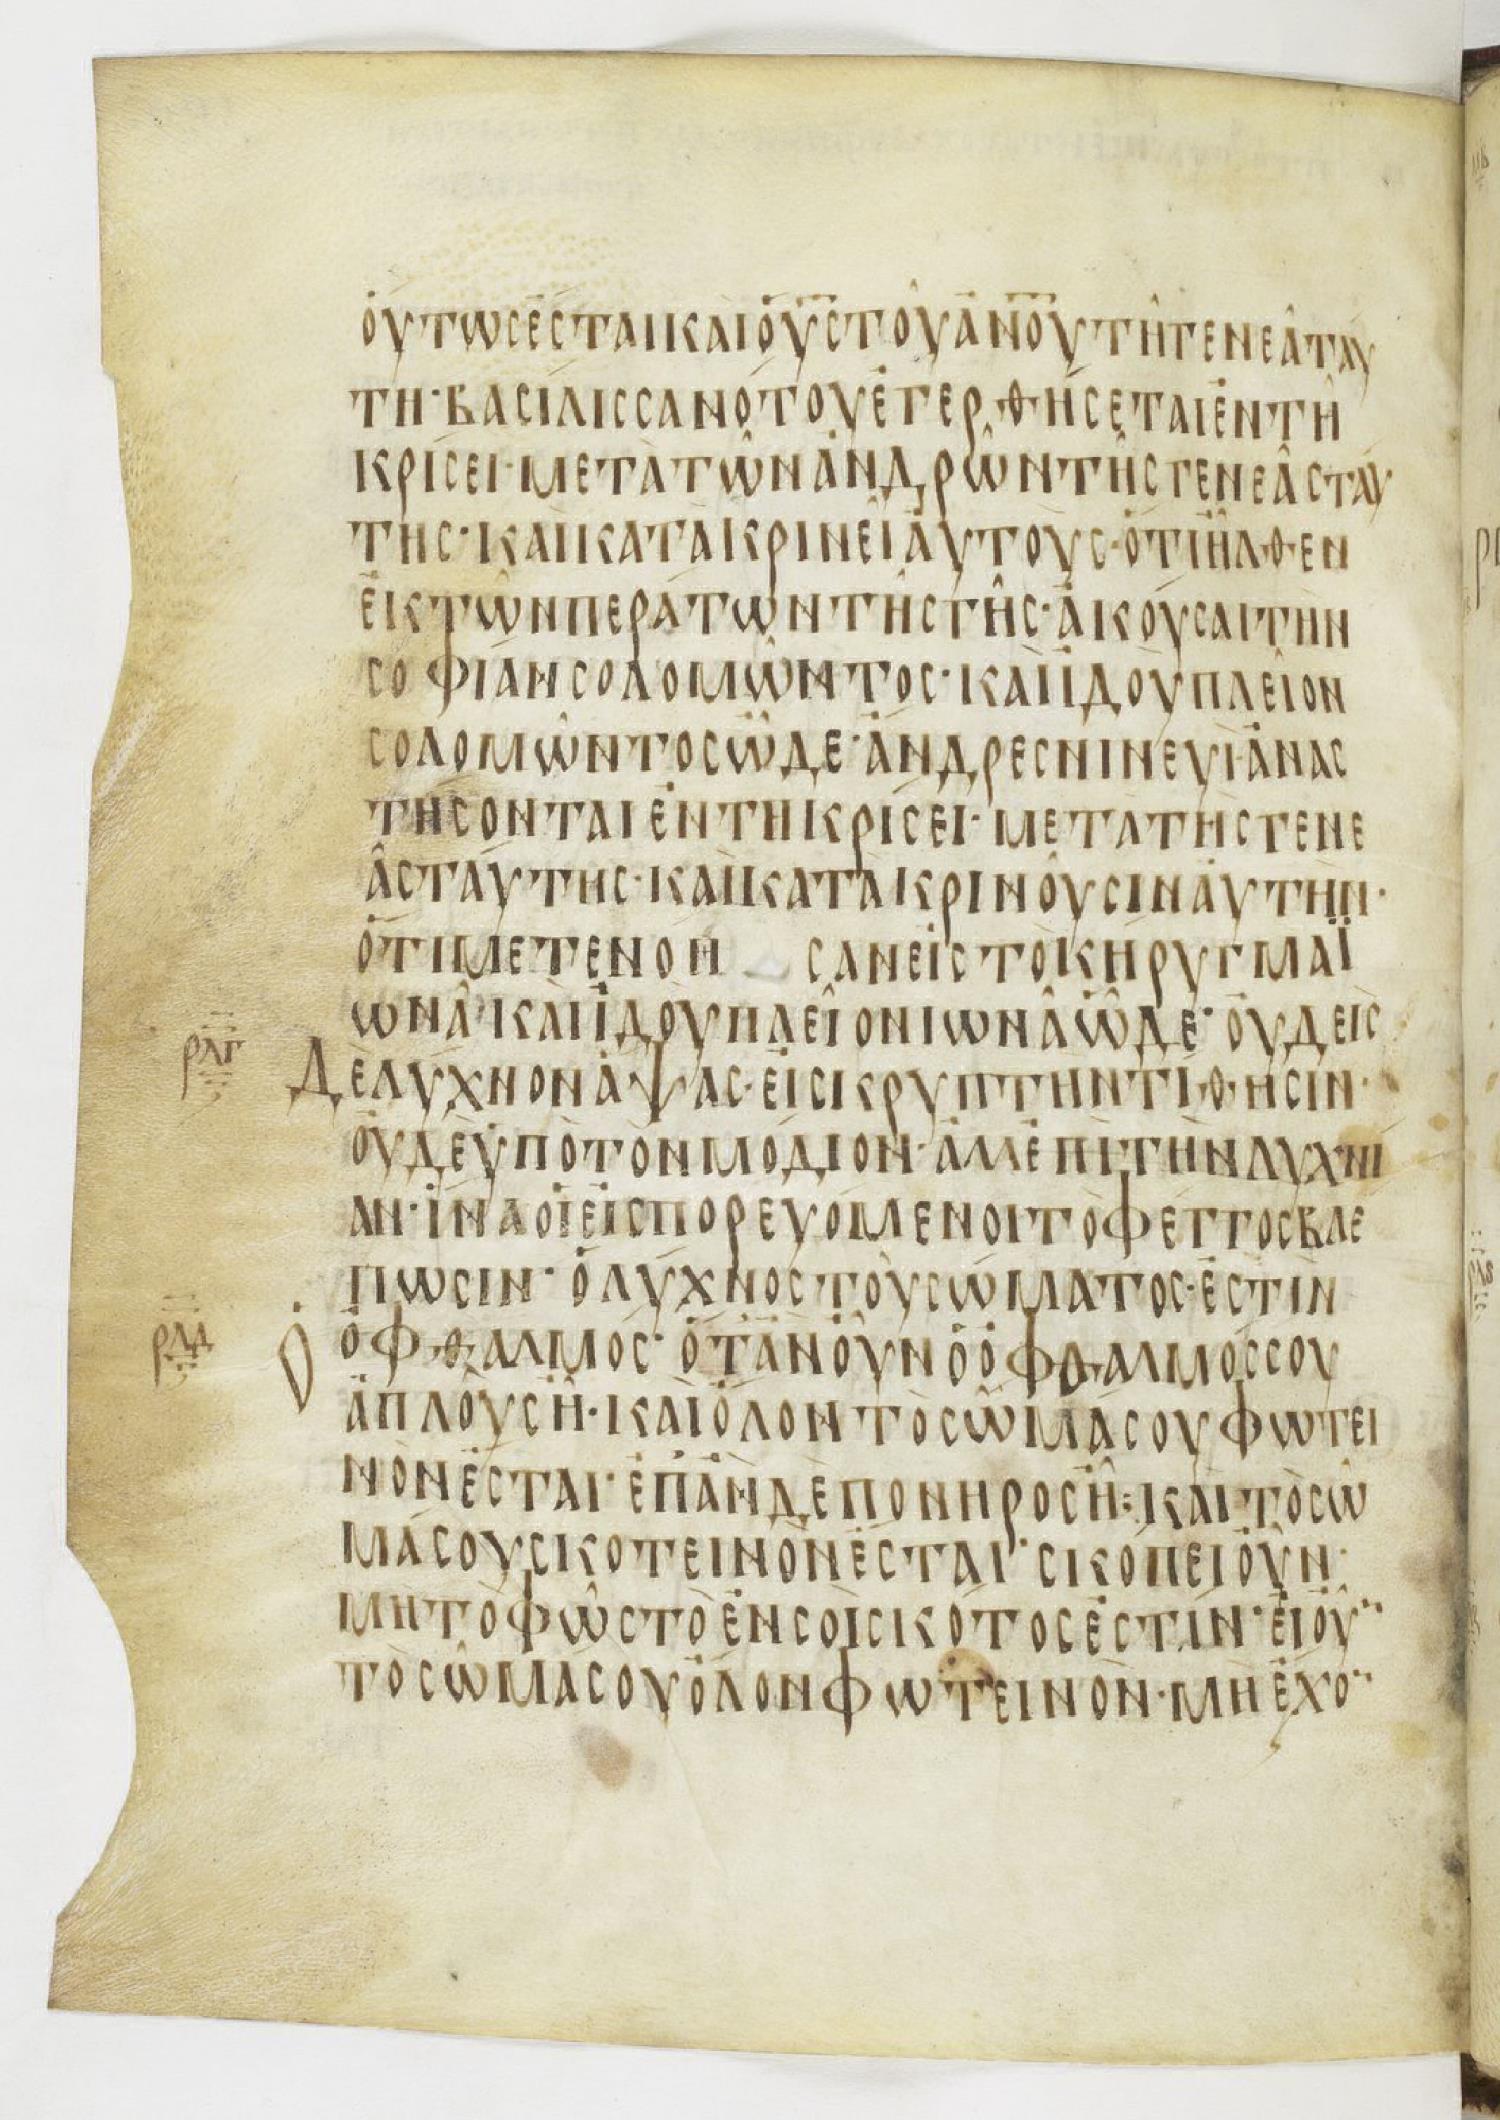 οὕτως ἔσται καὶ ὁ ῡς τοῦ ᾱνοῦ τῆ γενεᾶ ταύ
τη· βασίλισσα νότου ἐγερθήσεται ἐν τῆ
κρίσει· μετὰ τῶν ἀνδρῶν τῆς γενεᾶς ταύ
της· καὶ κατακρινεῖ αὐτούς· ὅτι ἦλθεν
ἐκ τῶν περάτων τῆς γῆς· ἀκοῦσαι τὴν
σοφίαν σολομῶντος· καὶ ἰδοὺ πλεῖον
σολομῶντος ὧδε· ἄνδρες νινευὶ ἀνασ
τήσονται ἐν τῆ κρίσει· μετὰ τῆς γενε
ᾶς ταύτης· καὶ κατακρινοῦσιν αὐτήν·
ὅτι μετενόη σαν εἰς τὸ κήρυγμα ϊ
ωνᾶ· καὶ ἰδοὺ πλεῖον ιωνᾶ ὧδε· οὐδεὶς
ρλγ Δὲ λύχνον ἅψας· εἰς κρυπτὴν τίθησιν·
οὐδὲ ὑπὸ τὸν μόδιον· ἀλλ ἐπὶ τὴν λυχνί
αν· ἵνα οἱ εἰσπορευόμενοι τὸ φέγγος βλέ
πωσιν· ὁ λύχνος τοῦ σώματος· ἐστὶν
ρλδ Ὁ ὀφθαλμός· ὅταν οὖν ὁ ὀφθαλμός σου
ἁπλοῦς ῆ· καὶ ὅλον τὸ σῶμά σου φωτει
νὸν ἔσται· ἐπὰν δὲ πονηρὸς ῆ· καὶ τὸ σῶ
μά σου σκοτεινὸν ἔσται· σκόπει οὖν·
μὴ τὸ φῶς τὸ ἐν σοὶ σκότος ἐστίν· εἰ οὖ̄
τὸ σῶμά σου ὅλον φωτεινὸν· μὴ ἔχο̄